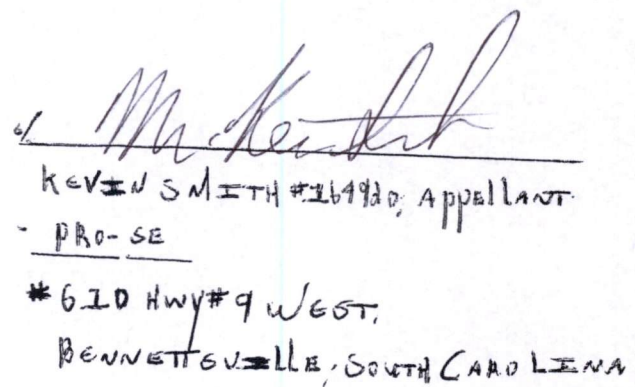 s/ Mr. Kevin Smith
KEVIN SMITH #164920, AppellANT
- pRO-SE
#610 HWY#9 WEST,
BENNETTSVILLE, SOUTH CAROLINA